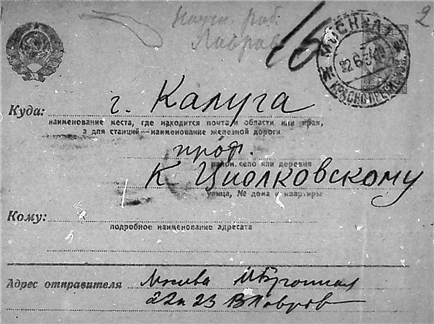 2
Научн. раб.
Лавров
16
МОСКВА
22 6 31
Куда: г. Калуга
наименование места, где находится почта и области или края,
а для станций—наименование железной дороги
проф.
район, село или деревня
К Циолковскому
улица, № дома и квартиры
Кому:
подробное наименование адресата
Адрес отправителя Москва М Бронная
22 23 В Лавров